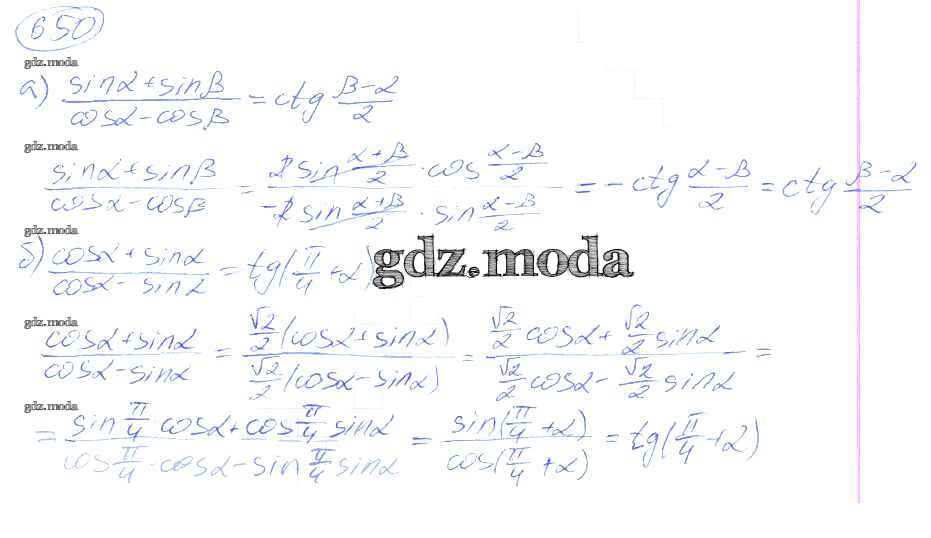 650
gdz.moda
а) (sinα + sinβ)/(cosα − cosβ) = ctg (β−α)/2
gdz.moda
(sinα + sinβ)/(cosα − cosβ) = (2 sin (α+β)/2 · cos (α−β)/2)/(−2 sin (α+β)/2 · sin (α−β)/2) = − ctg (α−β)/2 = ctg (β−α)/2
gdz.moda
б) (cosα + sinα)/(cosα − sinα) = tg(π/4 + α)
gdz.moda
gdz.moda
(cosα + sinα)/(cosα − sinα) = (√2/2 (cosα + sinα))/(√2/2 (cosα − sinα)) = (√2/2 cosα + √2/2 sinα)/(√2/2 cosα − √2/2 sinα) =
gdz.moda
= (sin π/4 cosα + cos π/4 sinα)/(cos π/4 · cosα − sin π/4 sinα) = sin(π/4 + α)/cos(π/4 + α) = tg(π/4 + α)